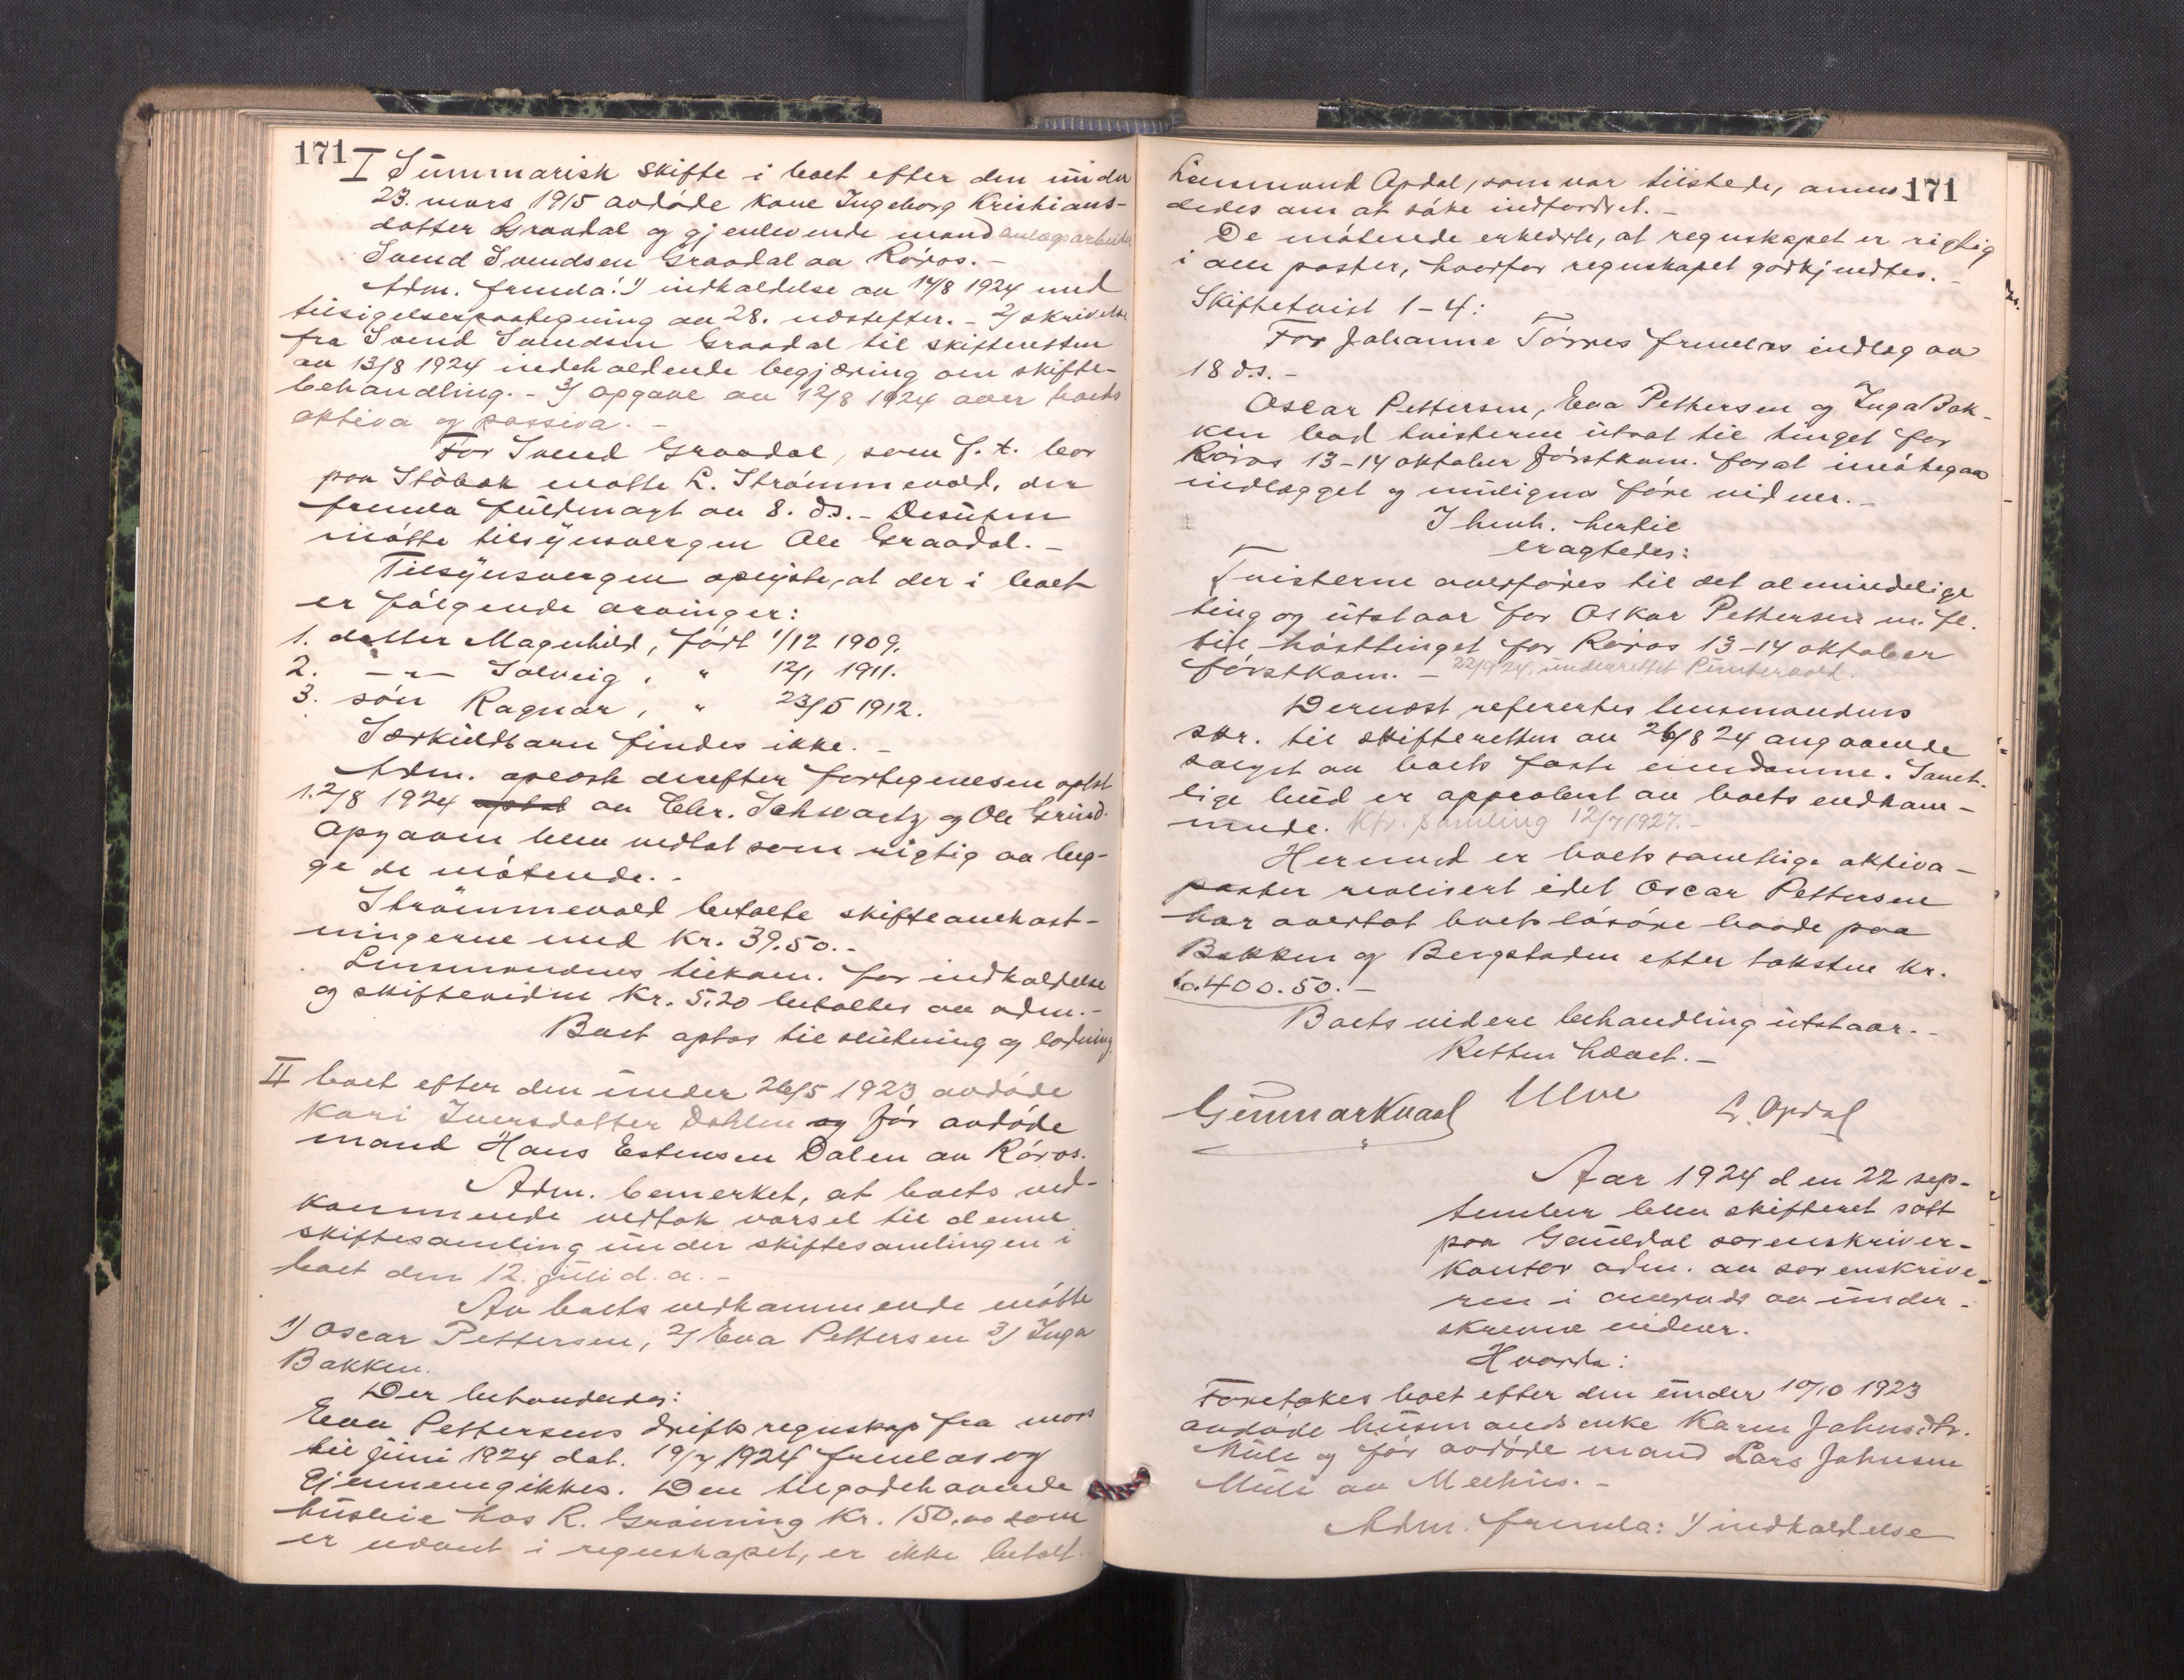 171
I Summarisk skifte i boet efter den under
23. mars 1915 avdøde kone Ingeborg Kristians-
datter Graadal og gjenlevende mand anlægsarbeider
Svend Svendsen Graadal av Røros. -
Adm. fremla: 1/ indkaldelse av 14/8 1924 med
tilsigelsespaategning av 28. s. - 2/ skrivelse
fra Svend Svendsen Graadal til skifteretten
av 13/8 1924 indeholdende begjæring om skifte-
behandling. - 3/ opgave av 12/8 1924 over boets
aktiva og passiva. -
For Svend Graadal, som f. t. bor
paa Støbak møtte L. Strømmevold, der
fremla fuldmagt av 8. ds. - Desuten
møtte tilsynsvergen Ole Graadal. -
Tilsynsvergen oplyste, at der i boet
er følgende arvinger:
1. datter Magnhild, født 1/12 1909.
2. -"- Solveig, " 12/1 1911.
3. søn Ragnar, " 23/5 1912.
Særkuldbarn findes ikke. -
Adm. oplæste derefter fortegnelsen optat
12/8 1924 optat av Chr. Schwartz og Ole Grind.
Opgaven blev vedtat som rigtig av beg-
ge de møtende. -
Strømmevold betalte skifteomkost-
ningerne med kr. 39.50. -
Lensmandens tilkom. for indkaldelse
og skiftevidne kr. 5.20 betaltes av adm. -
Boet optas til slutning og lodning.
II boet efter den under 26/5 1923 avdøde
Kari Iversdatter Dahlen og før avdøde
mand Hans Estensen Dalen av Røros.
Adm. bemerket, at boets ved-
kommende vedtok varsel til denne
skiftesamling under skiftesamlingen i
boet den 12. juli d. a. -
Av boets vedkommende møtte
1/ Oscar Pettersen, 2/ Eva Pettersen 3/ Inga
Bakken.
Der behandledes:
Eva Pettersens driftsregnskap fra mars
til juni 1924 dat. 19/7 1924 fremlas og
gjennemgikkes. Den tilgodehavende
husleie hos R. Grønning kr. 150,00 som
er nævnt i regnskapet, er ikke betalt.
171
Lensmand Opdal, som var tilstede, anmo-
dedes om at søke indfordret. -
De møtende erklærte, at regnskapet er rigtig
i alle poster, hvorfor regnskapet godkjendtes. -
Skiftetvist 1-4:
For Johanne Tørres fremlas indlæg av
18 ds. -
Oscar Pettersen, Eva Pettersen og Inga Bak-
ken bad tvisterne utsat til tinget for
Røros 13-14 oktober førstkom. for at imøtegaa
indlægget og muligens føre vidner. -
I henh. hertil
eragtedes:
Tvisterne overføres til det almindelige
ting og utstaar for Oskar Pettersen m. fl.
til høsttinget for Røros 13-14 oktober
førstkom. - 22/9 24. underrettet
Dernæst refereres lensmandens
skr. til skifteretten av 26/8 24 angaaende
salget av boets faste eiendomme. Samt-
lige bud er approbert av boets vedkom-
mende. Kfr. samling 12/7 1927. -
Hermed er boets samtlige aktiva-
poster realisert idet Oscar Pettersen
har overtat boets løsøre baade paa
Bakken og Bergstaden efter taksten kr.
400.50. -
Boets videre behandling utstaar. -
Retten hævet. -
Gunnar Kvaal Ulve L. Opdal
Aar 1924 den 22 sep-
tember blev skifteret satt
paa Gauldal sorenskriver-
kontor adm. av sorenskrive-
ren i overvær av under-
skrevne vidner.
Hvorda:
Foretokes boet efter den under 10/10 1923
avdøde husmandsenke Karen Johnsdtr.
Mule og før avdøde mand Lars Johnsen
Mule av Melhus. -
Adm. fremla: 1/ indkaldelse